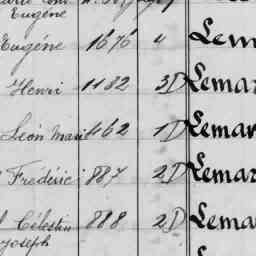 Eugéne
Eugéne 1676 4 Lem
Henri 1182 3D Lemar
Léon Mari 462 1D Lemar
Frédéric 887 2D Lemar
Célestin 888 2D Lema
Joseph